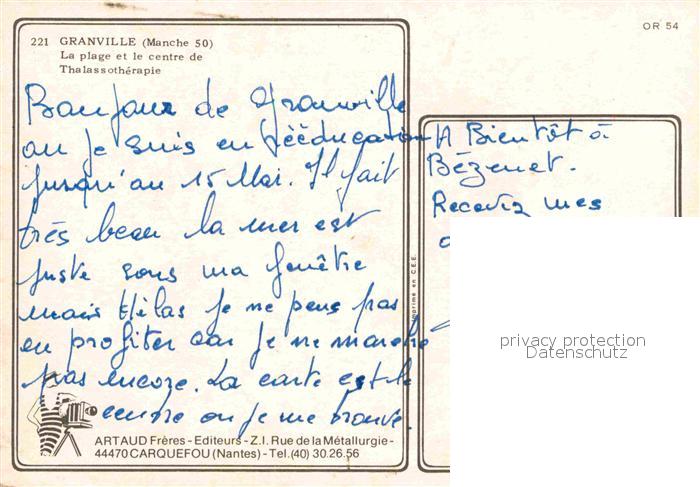 OR 54
221 GRANVILLE (Manche 50)
La plage et le centre de
Thalassothérapie
Bonjour de Granville
ou je suis en rééducation
jusqu'au 15 Mai. Il fait
très beau la mer est
juste sous ma fenêtre
mais Hélas je ne peus pas
en profiter car je ne marche
pas encore. La carte est le
centre ou je me trouve.
A Bientôt à
Bézenet.
Recevez mes
Imprimé en C.E.E.
privacy protection
Datenschutz
ARTAUD Frères - Editeurs - Z.I. Rue de la Métallurgie -
44470 CARQUEFOU (Nantes) - Tel. (40) 30.26.56